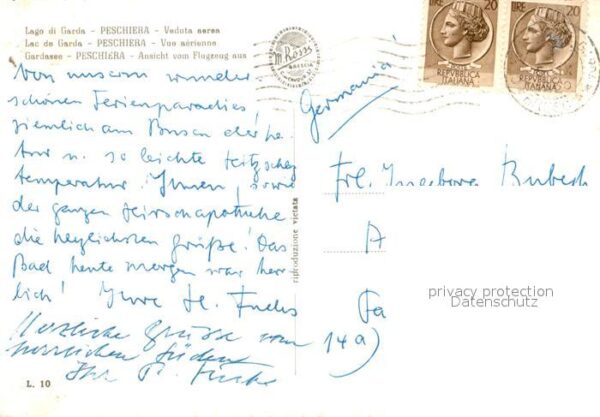 Lago di Garda - PESCHIERA - Veduta aerea
Lac de Garda - PESCHIERA - Vue aérienne
Gardasee - PESCHIERA - Ansicht vom Flugzeug aus
Von unserem wunder-
schönen Ferienparadies
ziemlich am Busen der Na-
tur u. so leichte
temperatur. Ihnen, sowie
der ganzen Hirschapotheke
die herzlichsten Grüße! Das
Bad heute morgen war herr-
lich! Ihre H. Fuchs
Herzliche Grüsse vom
herrlichen Süden
Ihr Fuchs
L. 10
riproduzione vietata
M. Rossi
BRESCIA
LIRE 20
LIRE 20
REPVBBLICA
ITALIANA
ITALIANA
Germania
Frl. Ingeborg Bubeck
A
Fa
14a)
privacy protection
Datenschutz